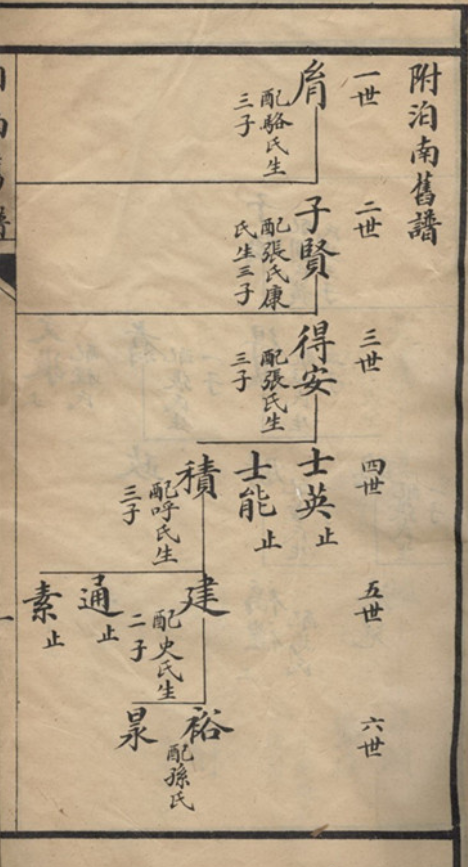 附泊南舊譜
一世
二世
三世
四世
五世
六世
㫺
配駱氏生
三子
子賢
配張氏康
氏生三子
得安
配張氏生
三子
士英
止
士能
止
積
配呼氏生
三子
建
配史氏生
二子
通
止
素
止
裕
配孫氏